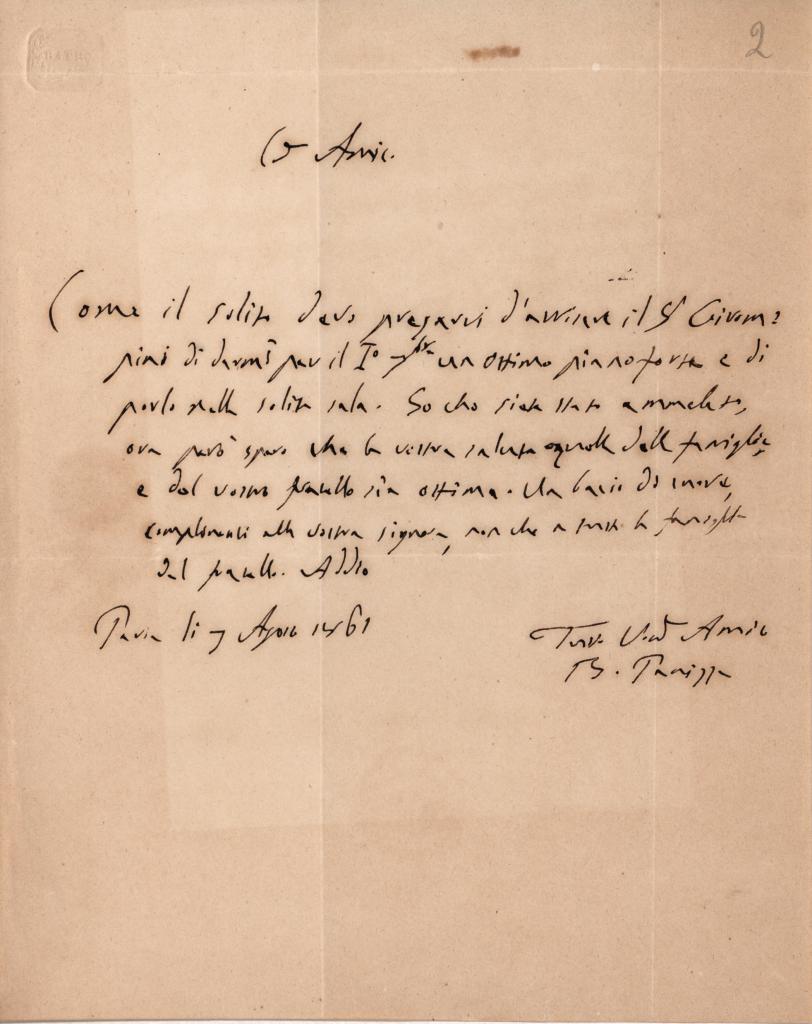 2
Co Amic.
Come il solito devo pregarvi d'avvisare il Sr Girom=
pini di darmi per il Io 7bre un ottimo pianoforte e di
porlo nella solita sala. So che siete stato ammalato,
ora però spero che la vostra salute e quella della famiglia,
e del vostro fratello sia ottima. Un bacio di cuore,
complimenti alla vostra signora, non che a tutta la famiglia
del fratello. Addio
Pavia li 7 Agosto 1861
Amic
B. Panizza